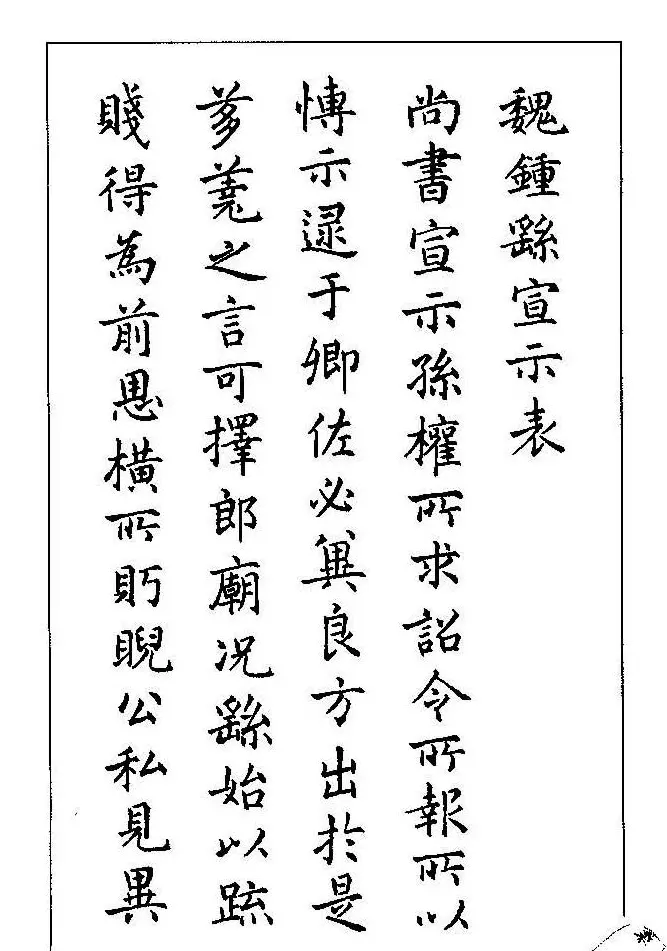 魏鍾繇宣示表
尚書宣示孫權所求詔令所報所以
博示逯于卿佐必冀良方出於是
芻蕘之言可擇郎廟況繇始以疏
賤得為前恩橫所眄睨公私見異